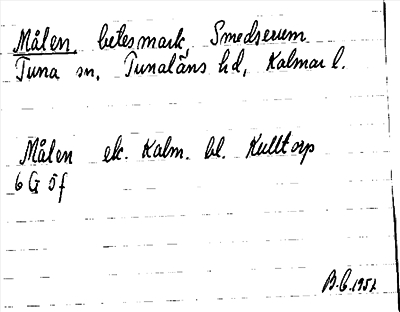 Målen, betesmark, Smedserum.
Tuna sn, Tunaläns hd, Kalmar l.
Målen ek. Kalm. bl. Kulltorp
6 G 5 f
B.G. 1957